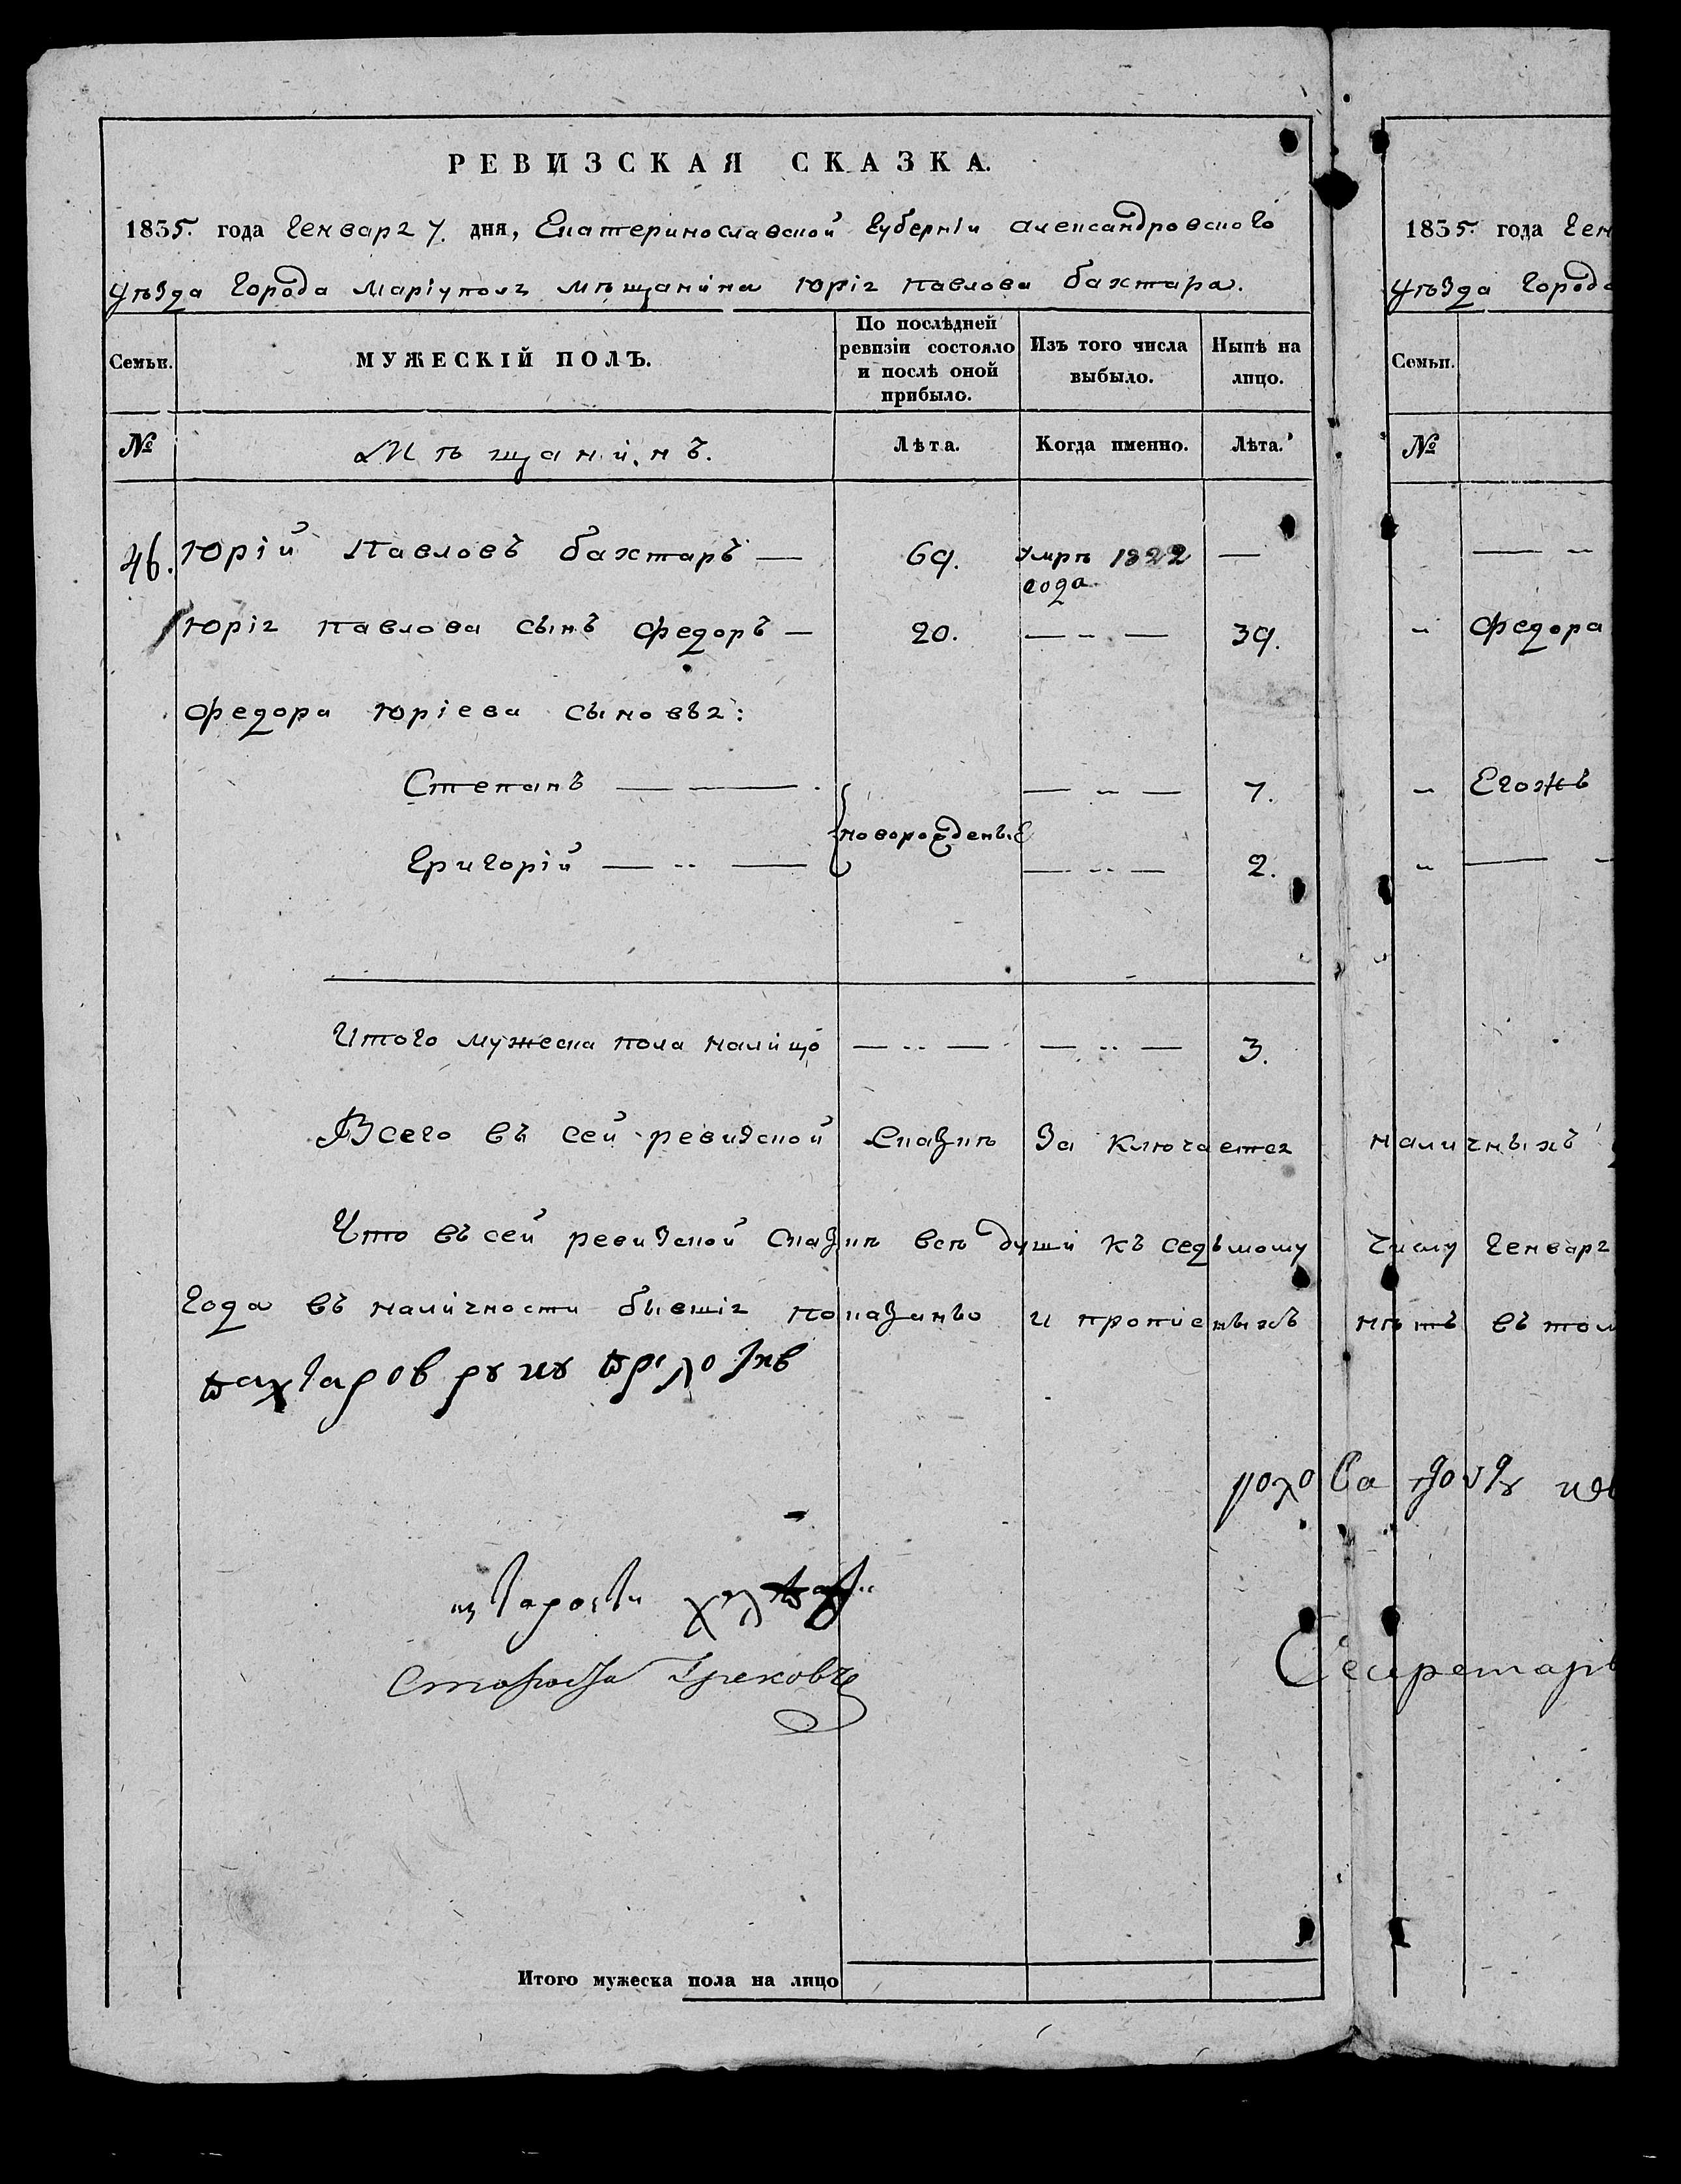 РЕВИЗСКАЯ СКАЗКА.
1835. года Генваря 7. дня, Екатеринославской Губерніи Александровскаго
уѣзда Города Маріуполя мѣщанина Юрія Павлова Бахтара.
Семьи.
МУЖЕСКІЙ ПОЛЪ.
По послѣдней ревизіи состояло и послѣ оной прибыло.
Изъ того числа выбыло.
Нынѣ на лицо.
№
Мѣщанинъ.
Лѣта.
Когда именно.
Лѣта.
46. Юрій Павловъ Бахтаръ — 69. умре 1822 —
года
Юрія Павлова сынъ Федоръ — 20. — „ — 39.
Федора Юріева сыновья:
Степанъ — — — „ — 7.
новорожденыє
Григорій — „ — — „ — 2.
Итого мужеска пола налицо — „ — — „ — 3.
Всего въ сей ревизской сказкѣ заключается
Что въ сей ревизской сказкѣ всѣ души къ седьмому
года въ наличности бывшія показаны и прописныхъ
Староста Грековъ
Итого мужеска пола на лицо
1835. года Ген
уѣзда Города
Семьи.
№
— „
„ Федора
„ Егожъ
„ —
наличныхъ
числу Генваря
нѣтъ въ том
Секретарь